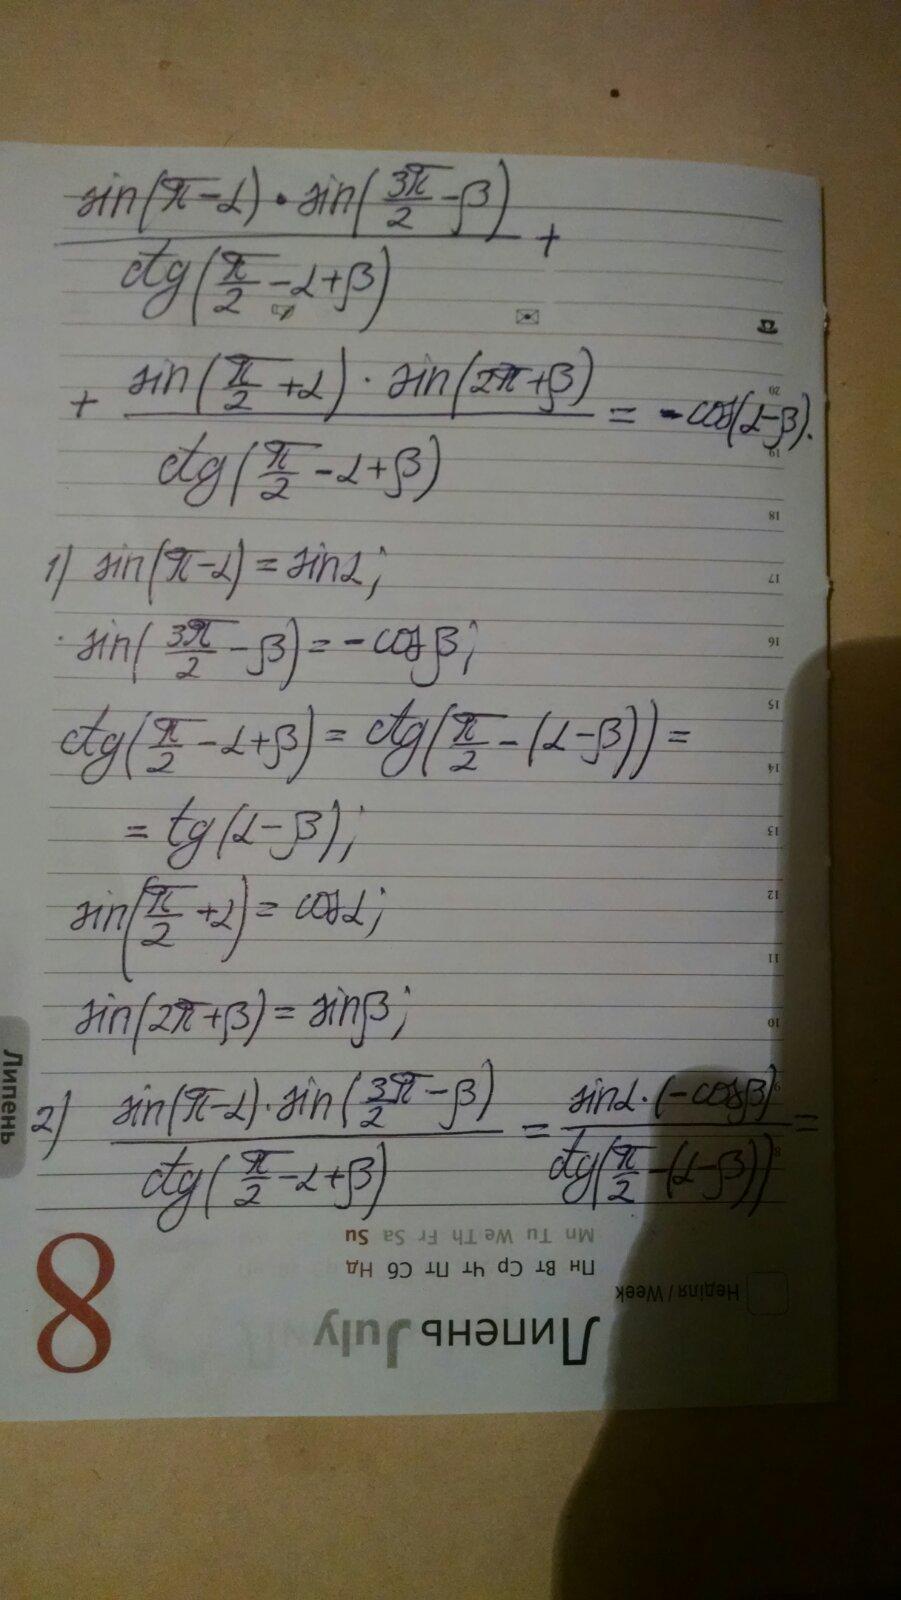 sin(π-α)·sin(3π/2-β)
/ ctg(π/2-α+β) +
+ sin(π/2+α)·sin(2π+β)
/ ctg(π/2-α+β) = -cos(α-β).
1) sin(π-α)=sinα;
sin(3π/2-β)=-cosβ;
ctg(π/2-α+β)=ctg(π/2-(α-β))=
=tg(α-β);
sin(π/2+α)=cosα;
sin(2π+β)=sinβ;
2) sin(π-α)·sin(3π/2-β) / ctg(π/2-α+β) = sinα·(-cosβ) / ctg(π/2-(α-β)) =
20
19
18
17
16
15
14
13
12
11
10
9
8
Липень
8
Mn Tu We Th Fr Sa Su
Пн Вт Ср Чт Пт Сб Нд
Неділя / Week
Липень July